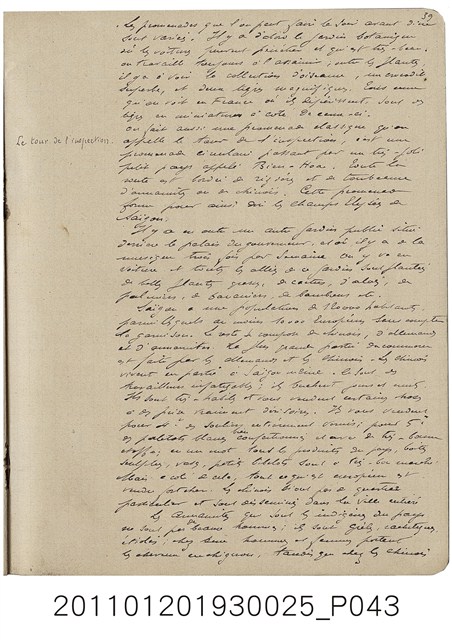 39
Les promenades que l'on peut faire le soir avant dîner
sont variées. Il y a d'abord le jardin botanique
où les voitures peuvent pénétrer et qui est très beau.
on travaille toujours à l'assainir, outre les plantes,
il y a à voir la collection d'oiseaux, un crocodile
superbe, et deux tigres magnifiques. Tous ceux
qu'on voit en France où ils dépérissent, sont des
tigres en miniature à côté de ceux-ci.
On fait aussi une promenade classique qu'on
appelle le tour de l'inspection, c'est une
Le tour de l'inspection.
promenade circulaire passant par un très joli
petit pays appelé Bien-Hoa. Toute la
route est bordée de rizières et de tombeaux
d'annamites ou de chinois. Cette promenade
forme pour ainsi dire les Champs Elysées de
Saïgon.
Il y a en outre un autre jardin public situé
derrière le palais du gouverneur, et où il y a de la
musique trois fois par semaine. On y va en
voiture et toutes les allées de ce jardin sont plantées
de belles plantes grasses, de cactus, d'aloès, de
palmiers, de bananiers, de bambous etc.
Saïgon a une population de 120000 habitants,
parmi lesquels au moins 10.000 Européens sans compter
la garnison. Le reste se compose de chinois, d'allemands
et d'annamites. La plus grande partie du commerce
est faite par les allemands et les chinois. Les chinois
vivent en partie à Saïgon même. Ce sont des
travailleurs infatigables; ils bûchent jour et nuit.
Ils sont très-habiles et vous vendent certaines choses
à des prix vraiment dérisoires. Ils vous vendent
pour 4f des souliers entièrement vernis; pour 5f
des paletots blancs bien confectionnés et avec de très-bonne
étoffe; en un mot tous les produits du pays, boîtes
sculptées, vases, petits bibelots sont à très-bon marché.
Mais à côté de cela, tout ce qui est européen est
vendu fort cher. Les chinois n'ont pas de quartier
particulier et sont disséminés dans la ville entière
Les Annamites qui sont les indigènes du pays
ne sont pas de beaux hommes; ils sont grêles, rachitiques,
étiolés; chez eux hommes et femmes portent
les cheveux en chignon, tandis que chez les chinois
201101201930025_P043